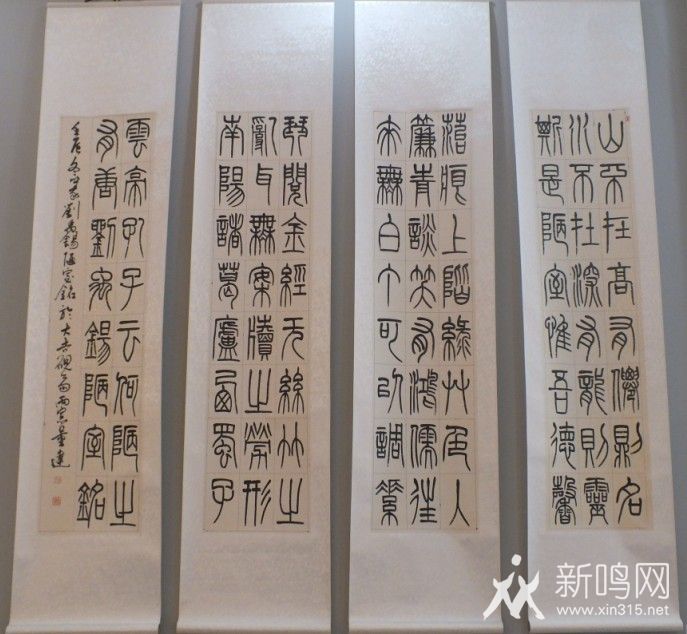 山不在高有僊則名
水不在深有龍則靈
斯是陋室惟吾德馨
苔痕上階綠艸色入
簾青談笑有鴻儒往
來無白丁可以調素
琴閱金經无絲竹之
亂耳無案牘之勞形
南陽諸葛廬西蜀子
雲亭孔子云何陋之
有唐劉禹錫陋室銘
壬辰冬篆劉禹錫陋室銘於大
新鸣网
www.xin315.net